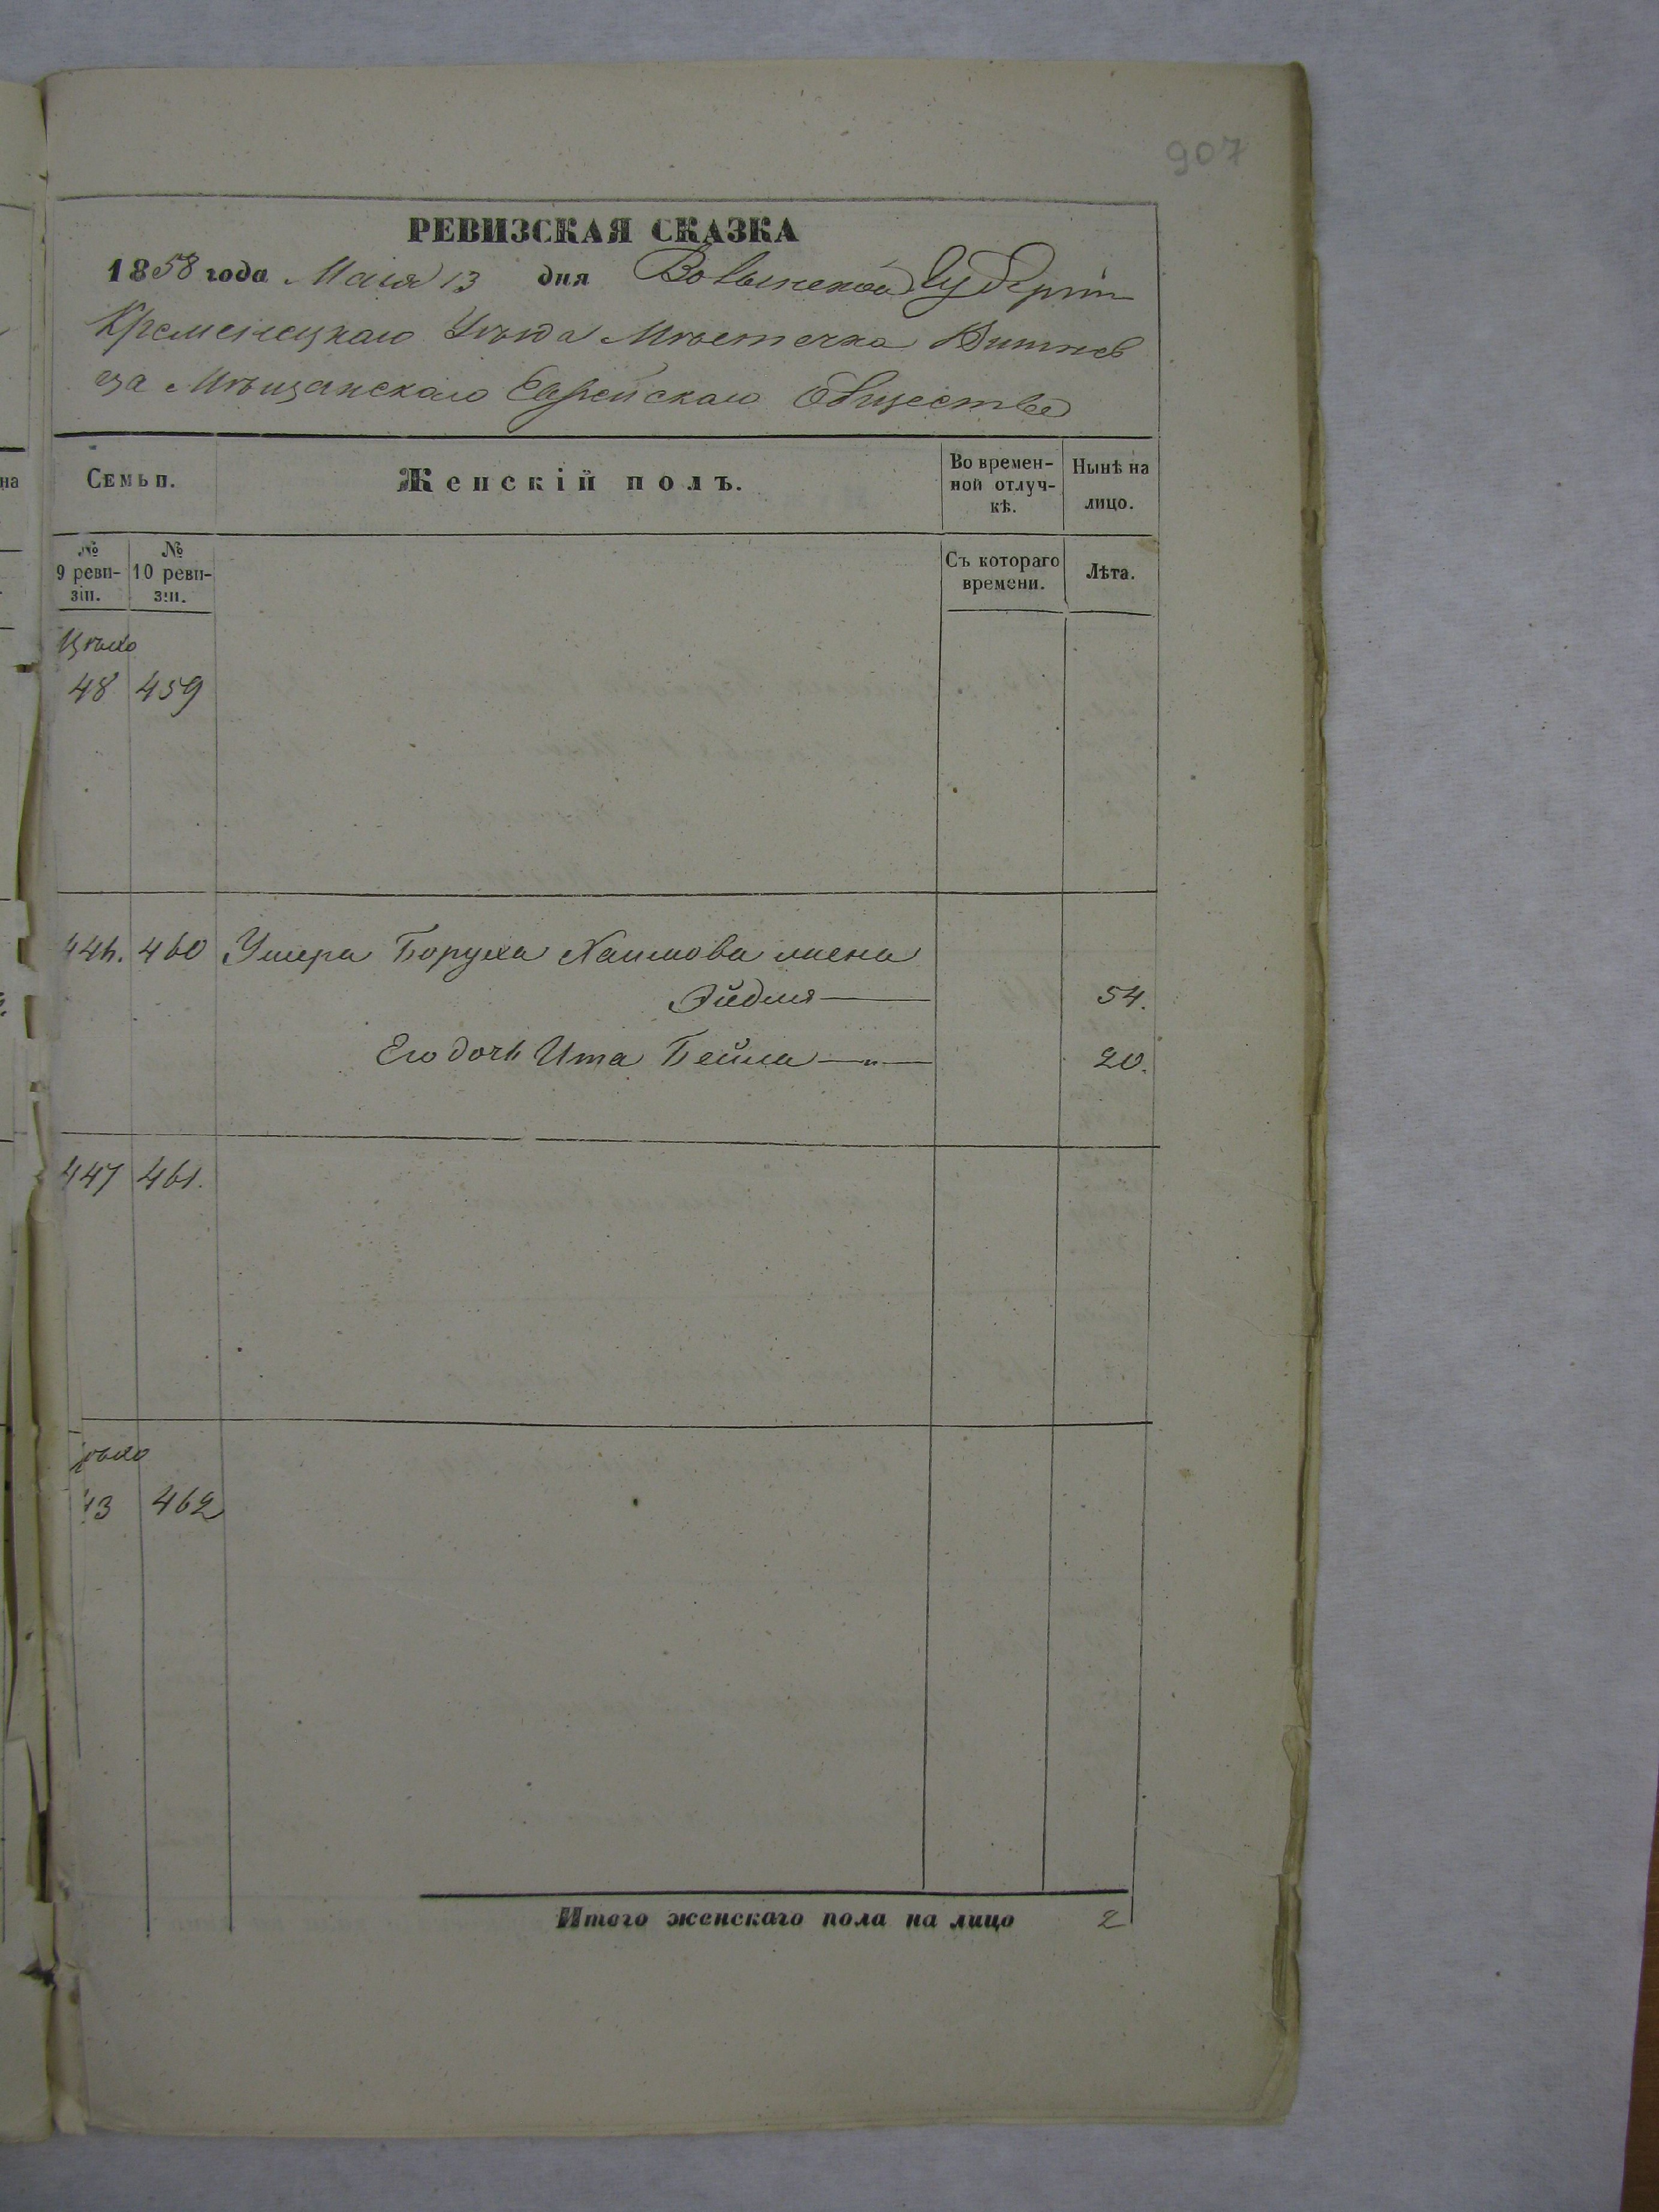 907
РЕВИЗСКАЯ СКАЗКА
1858 года Маія 13 дня Волынской Губерніи
Кременецкаго Уѣзда Мѣстечка Вишнев
ца Мѣщанскаго Еврейскаго Общества
Семьи.
Женскій полъ.
Во времен-
ной отлуч-
кѣ.
Нынѣ на
лицо.
№
9 реви-
зіи.
№
10 реви-
зіи.
Съ котораго
времени.
Лѣта.
48 459
446. 460 Умера Боруха Хаимова жена
Эйдля 54.
Его дочь Ита Бейла —"— 20.
447 461.
43 462
Итого женскаго пола на лицо 2